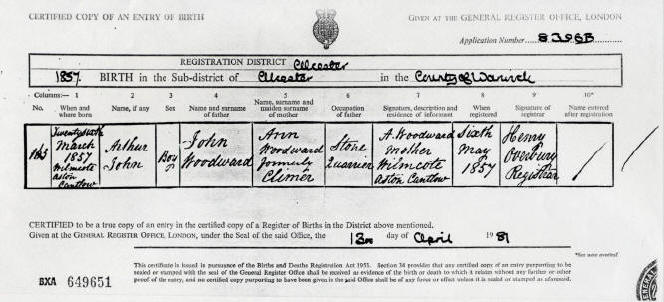 CERTIFIED COPY OF AN ENTRY OF BIRTH
GIVEN AT THE GENERAL REGISTER OFFICE, LONDON
Application Number 8396B
REGISTRATION DISTRICT Alcester
1857. BIRTH in the Sub-district of Alcester in the County of Warwick
Columns:— 1 2 3 4 5 6 7 8 9 10*
No. When and where born Name, if any Sex Name and surname of father Name, surname and maiden surname of mother Occupation of father Signature, description and residence of informant When registered Signature of registrar Name entered after registration
Twenty sixth March 1857 Wilmcote Aston Cantlow
Arthur John
Boy
John Woodward
Ann Woodward formerly Climer
Stone Quarrier
A. Woodward mother Wilmcote Aston Cantlow
Sixth May 1857
Henry Overbury Registrar
CERTIFIED to be a true copy of an entry in the certified copy of a Register of Births in the District above mentioned.
Given at the GENERAL REGISTER OFFICE, LONDON, under the Seal of the said Office, the 13th day of April 1981
*See note overleaf
This certificate is issued in pursuance of the Births and Deaths Registration Act 1953. Section 34 provides that any certified copy of an entry purporting to be
sealed or stamped with the seal of the General Register Office shall be received as evidence of the birth or death to which it relates without any further or other
proof of the entry, and no certified copy purporting to have been given in the said Office shall be of any force or effect unless it is sealed or stamped as aforesaid.
BXA 649651